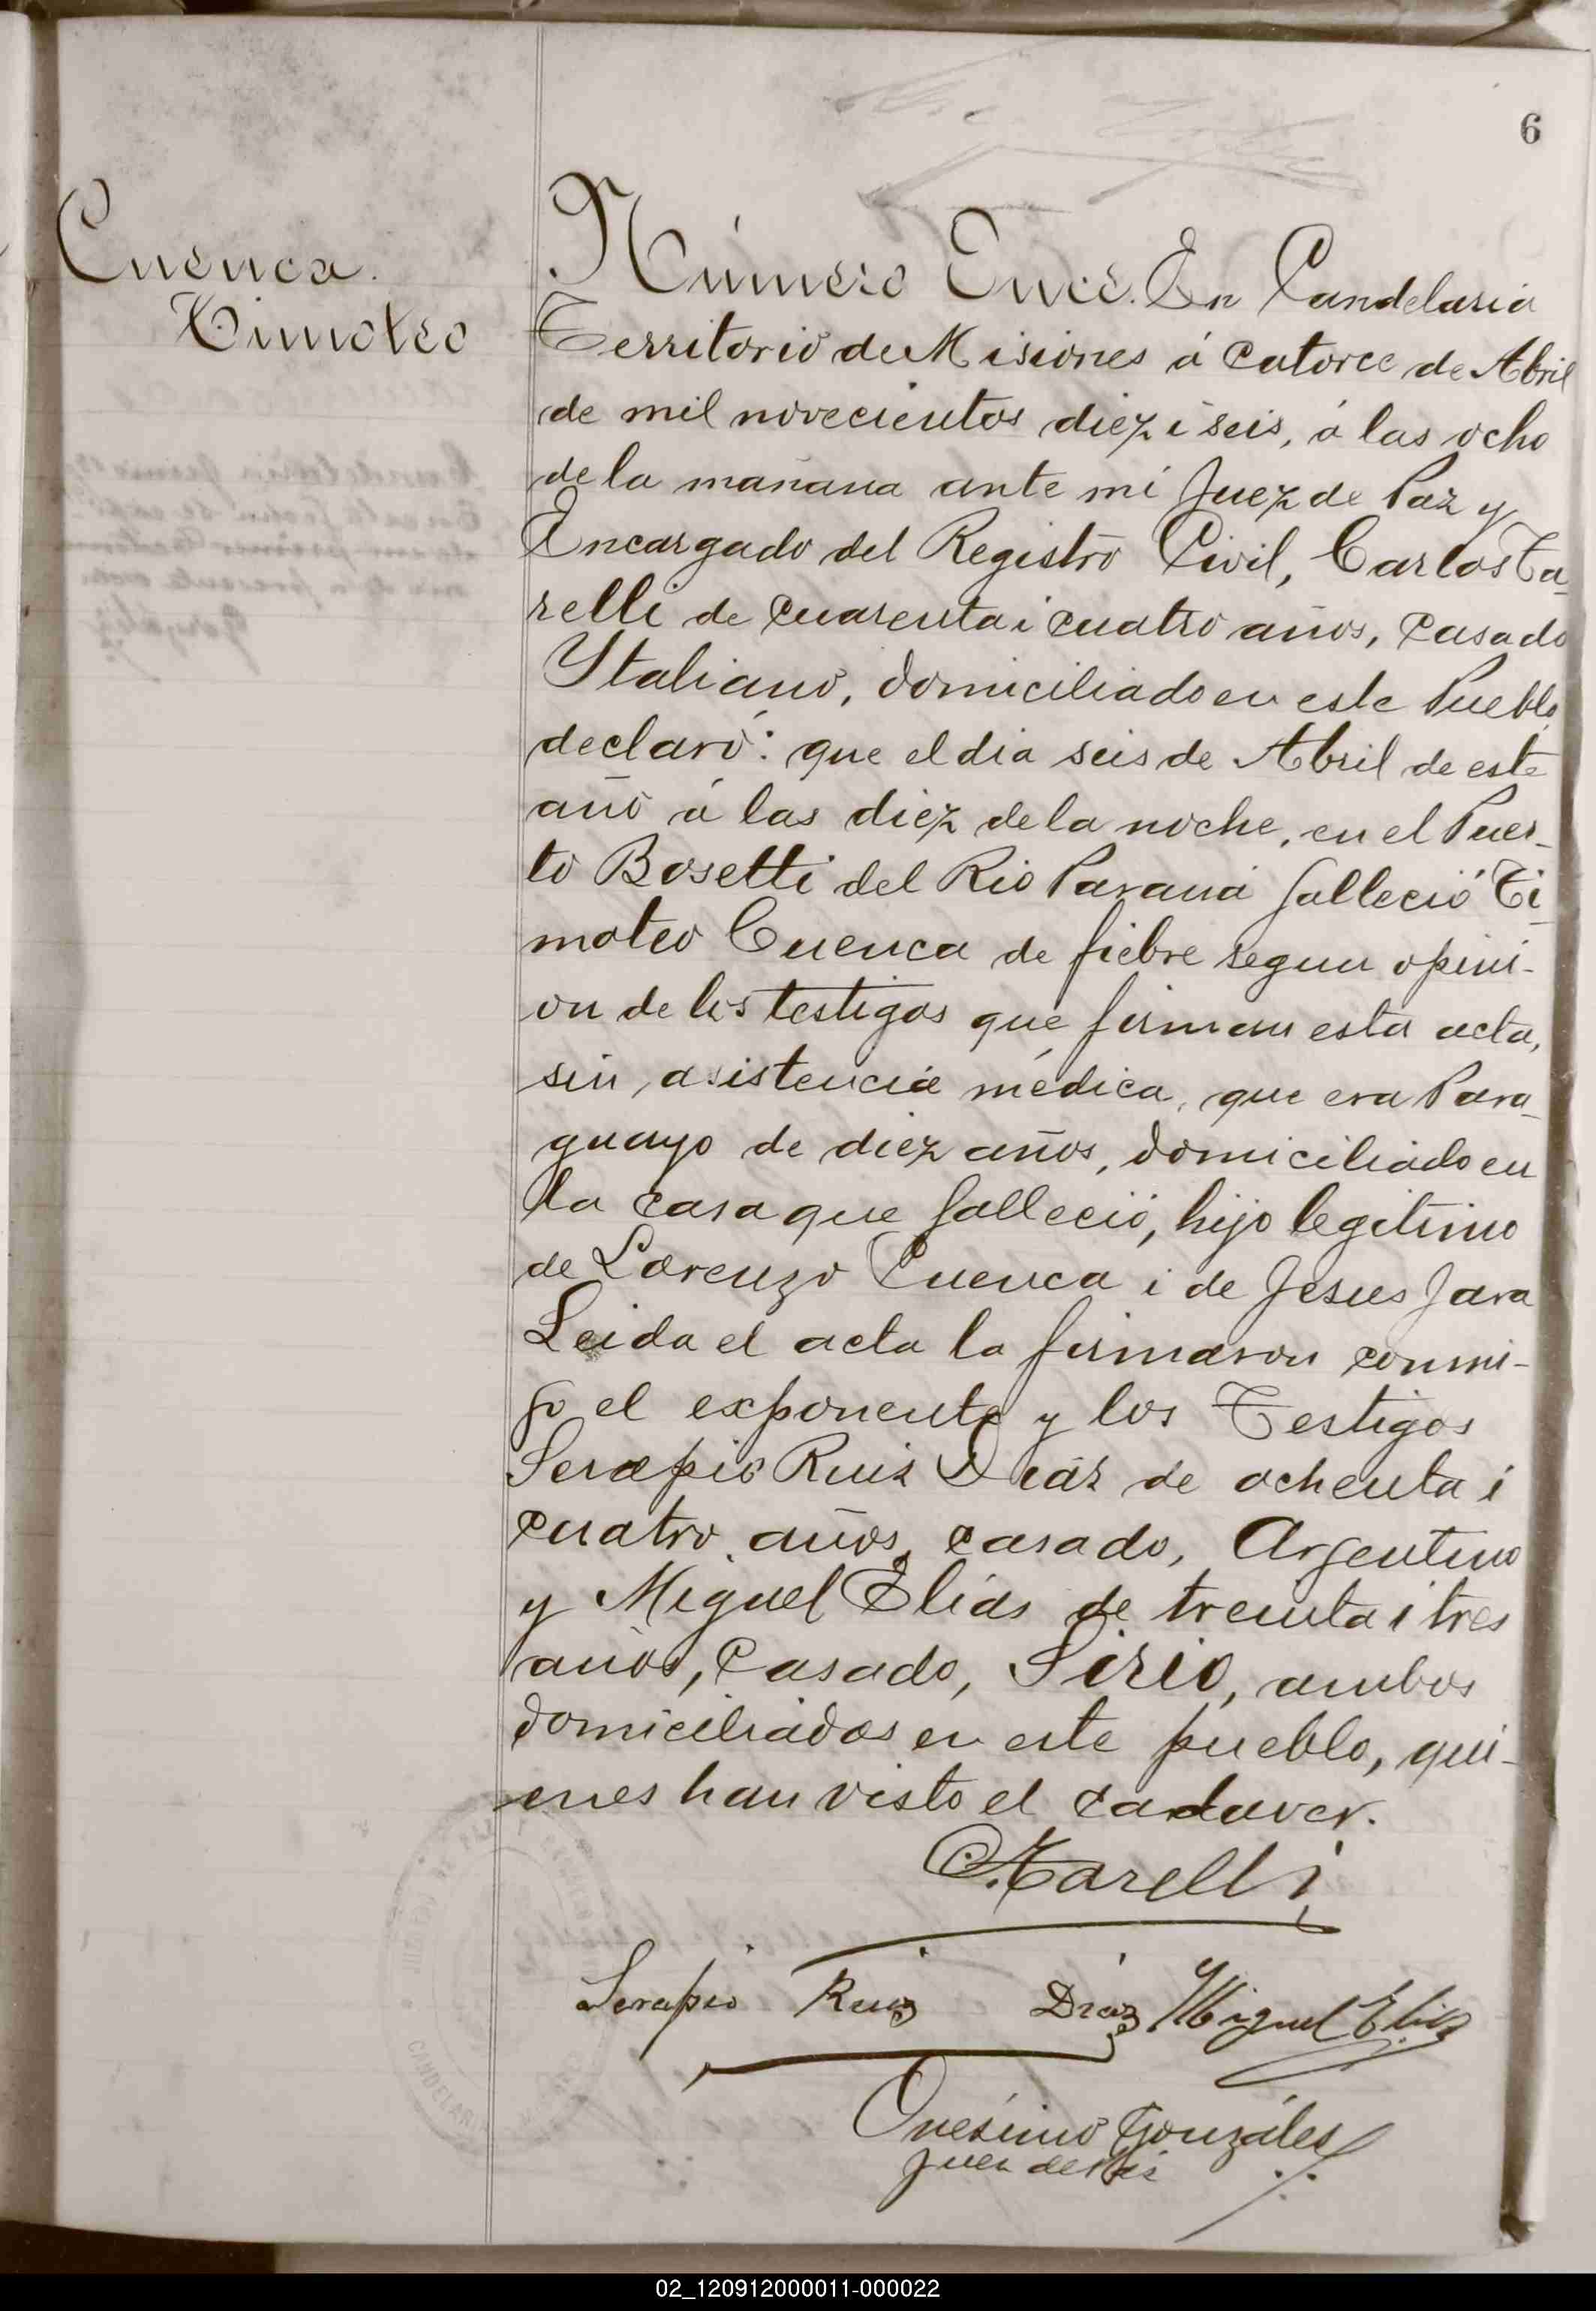 6
Cuenca.
Timoteo
Número Once. En Candelaria
Territorio de Misiones á catorce de Abril
de mil novecientos diez i seis, á las ocho
de la mañana ante mi Juez de Paz y
Encargado del Registro Civil, Carlos Ta-
relli de cuarenta i cuatro años, casado
Ytaliano, domiciliado en este Pueblo
declaró: que el dia seis de Abril de este
año á las diez de la noche, en el Puer-
to Bosetti del Rio Paraná falleció Ti-
moteo Cuenca de fiebre segun opini-
on de los testigos que firman esta acta,
sin asistencia médica, que era Para-
guayo de diez años, domiciliado en
la casa que falleció, hijo legitimo
de Lorenzo Cuenca i de Jesus Jara
Leida el acta la firmaron conmi-
go el exponente y los Testigos
Serapio Ruiz Diaz de ochenta i
cuatro años, casado, Argentino
y Miguel Elias de treinta i tres
años, casado, Sirio, ambos
domiciliados en este pueblo, qui-
enes han visto el cadaver.
C. Tarelli
Serapio Ruiz Diaz Miguel Elias
Onésimo Gonzáles
Juez de Paz
CANDELARIA
02_120912000011-000022